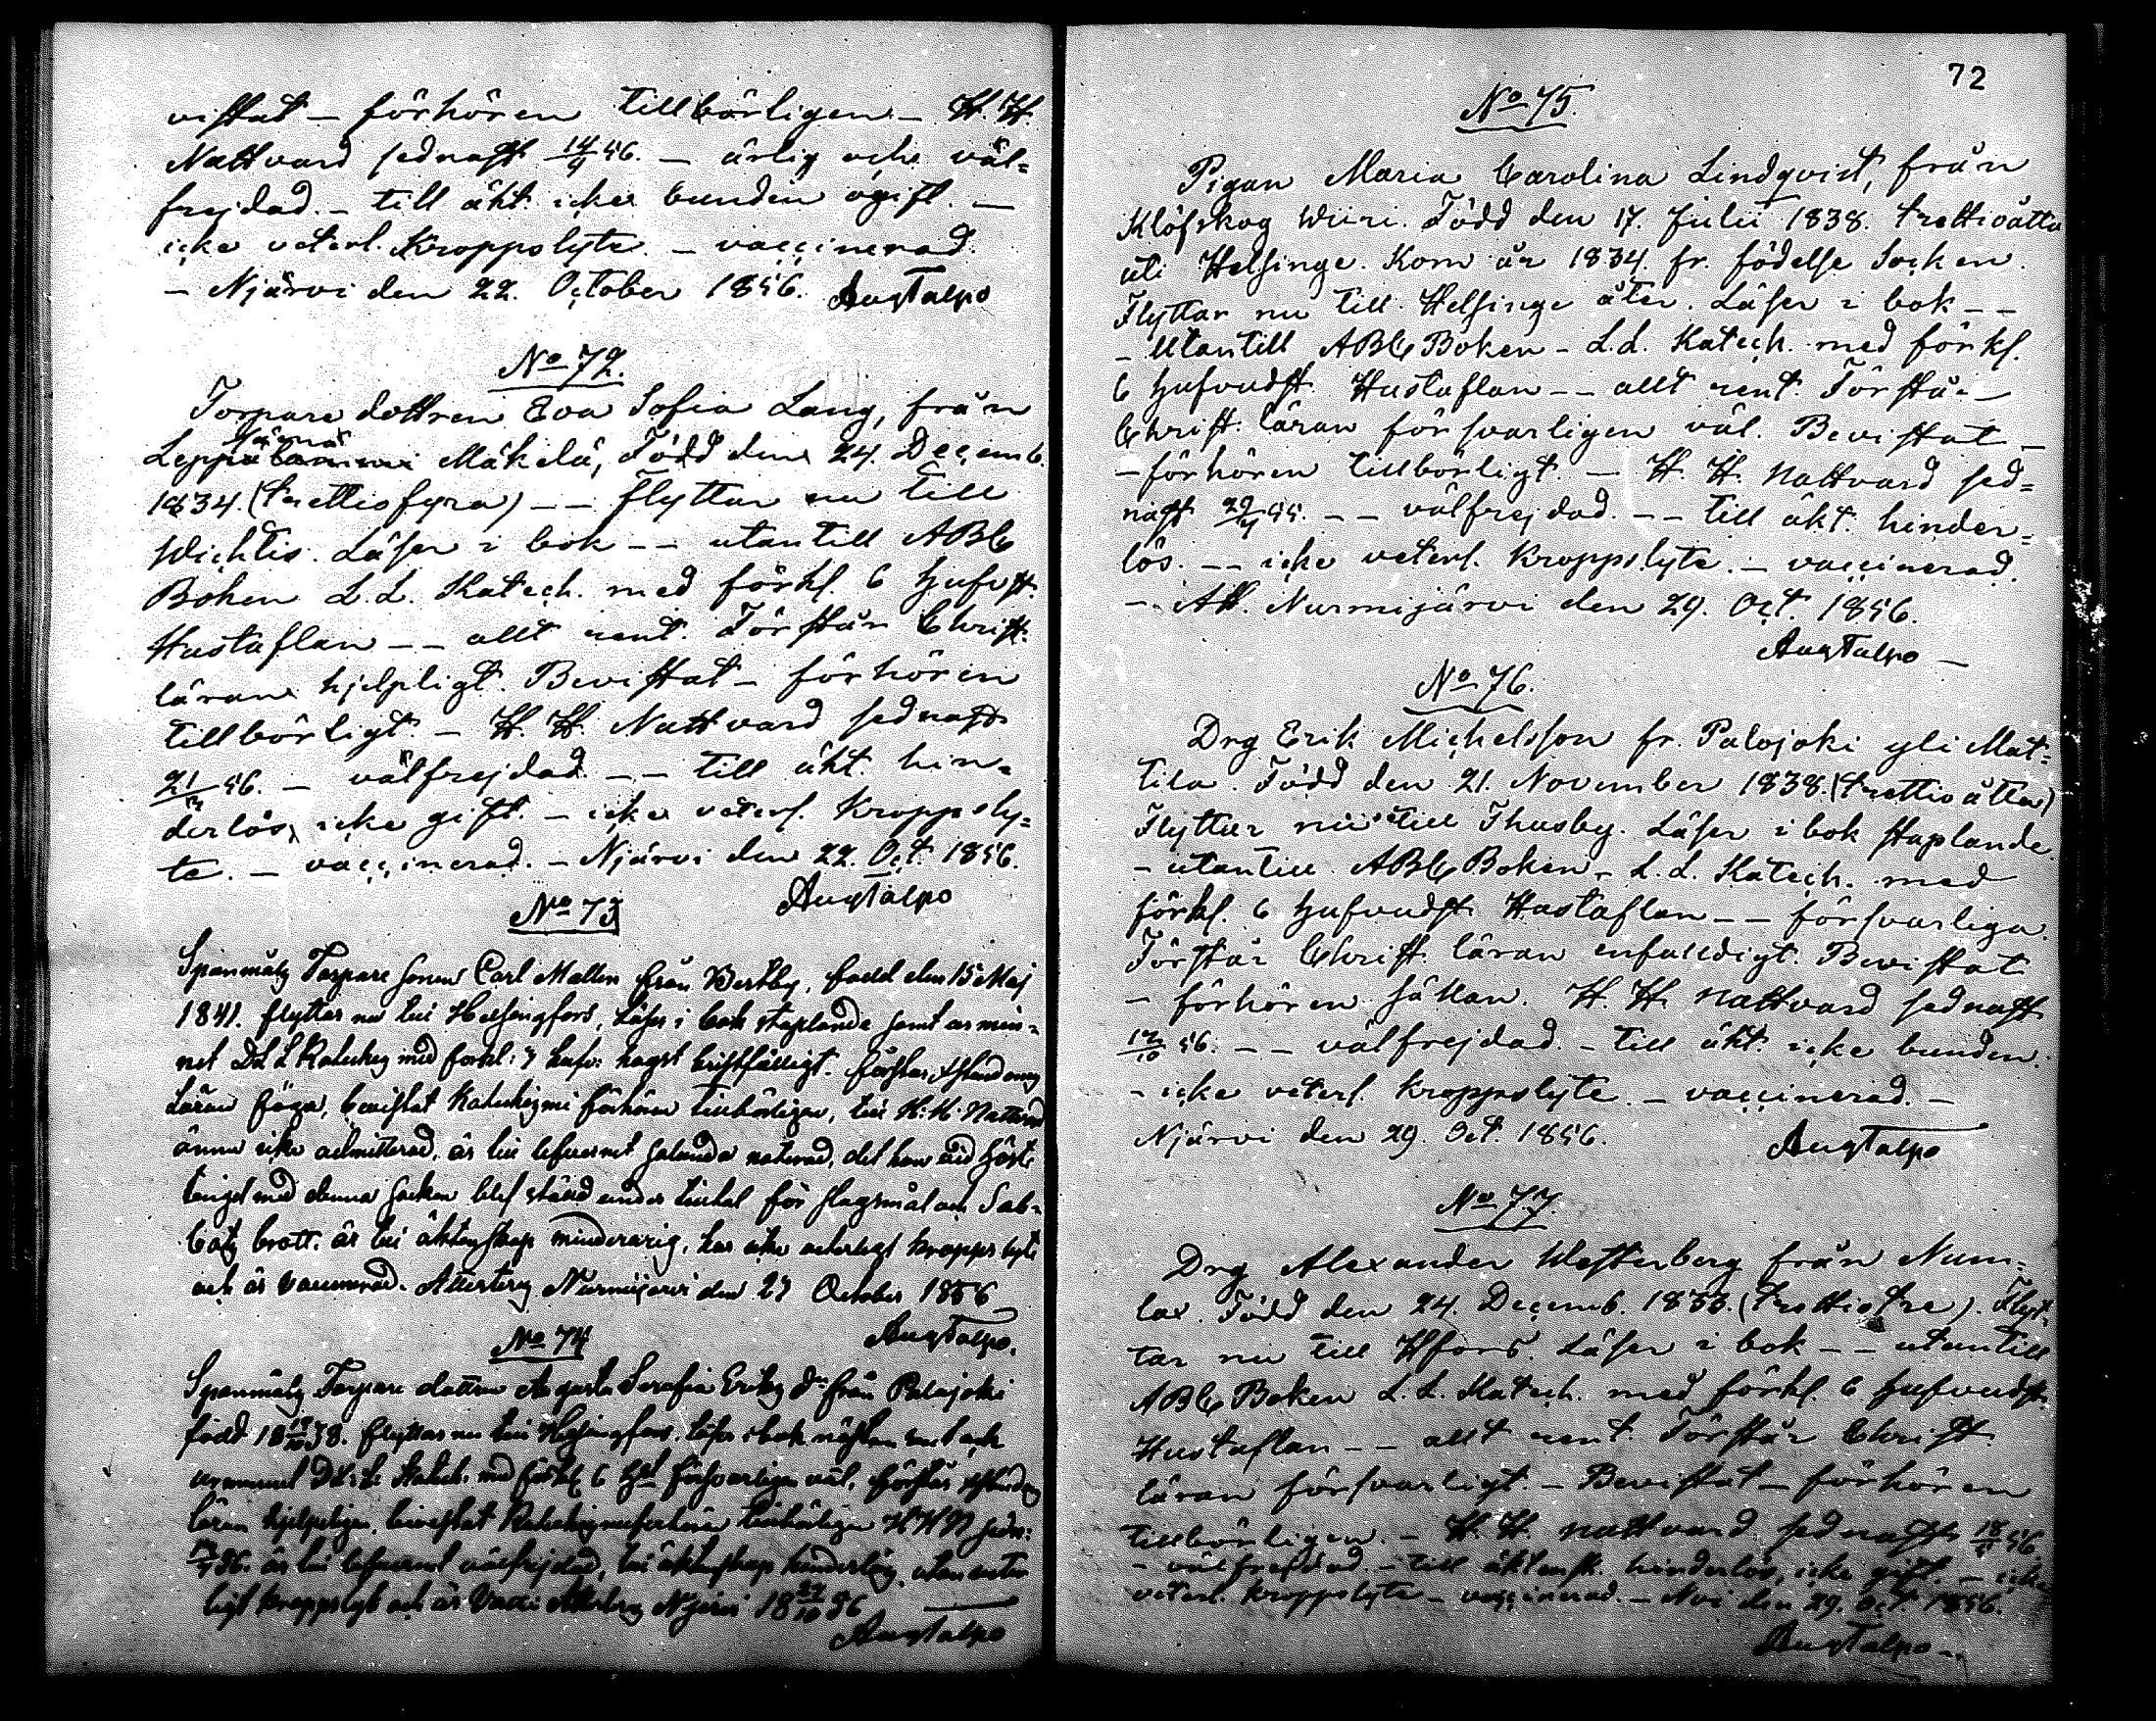 vistat – förhören tillbörligen – H. H.
Nattvard sednast 14/9 56. – ärlig och väl=
frejdad. – till äkt. icke bunden ogift. –
icke veterl. Kroppslyte. – vaccinerad.
– Njärvi den 22. October 1856. Aug Talpo
No 72.
Torpare dottren Eva Sofia Lang, från
Leppä Mäkelä, Född den 24. Decemb.
1834. (trettiofyra) – – flyttar nu till
Wichtis. Läser i bok – – utantill ABC
Boken L. L. Katech. med förkl. 6 Hufvst.
Hustaflan – – allt rent. Förstår Christ.
läran hjelpligt. Bevistat – förhören
tillbörligt. – H. H. Nattvard sednast
21/ 56. – välfrejdad – – till äkt. hin=
derlös, icke gift. – icke veterl. Kroppsly=
te. – vaccinerad. – Njärvi den 22. Oct. 1856.
Aug Talpo
No 73
Spanmåls Torpare sonen Carl Mallen från Bertby, född den 15 Maj
1841. flyttar nu till Helsingfors, Läser i bok staplande samt ur min=
net D L L Kateches med förkl: 7 hufv: något bristfälligt. förstår
Läran föga, bevistat Katechismi förhören tillbörligen, till H: H. Nattvard
ännu icke admitterad, är till lefvernet sålunda noterad, det han vid höste
tinget med denna socken blef ställd under tilltal för slagsmål och Sab=
bats brott. är till äktenskap minderårig, har icke veterligt kropps lyte
och är Vaccinerad. Attesteras Nurmijärvi den 27 October 1856
Aug Talpo.
No 74
Spanmåls Torpare dottren Augusta Serafia Eriks dr från Palojoki
född 18 38. flyttar nu till Helsingfors. Läser i bok nästan rent och
ur minnet D L: L: Katech: med förkl 6 försvarligen väl, förstår
läran hjelpligen, bevistat Katechismi förhören tillbörligen H H N sedn:
56. är till lefvernet välfrejdad, till äktenskap hinderlös, utan veter
ligt kroppslyte och är Vacci: Attesteras Njärvi 18 27/10 56
Aug Talpo
72
No 75.
Pigan Maria Carolina Lindqvist, från
Klöfskog Wiiri. Född den 17. Julii 1838. trettioåtta
uti Helsinge. Kom år 1834 fr. födelse Socken
Flyttar nu till Helsinge åter. Läser i bok – –
– Utantill ABC Boken – L. L. Katech. med förkl.
6 Hufvudst. Hustaflan – – allt rent. Förstår –
Christ. läran försvarligen väl. Bevistat –
– förhören tillbörligt. – H. H. Nattvard sed=
nast 55. – – välfrejdad. – – till äkt. hinder=
lös. – – icke veterl. Kroppslyte. – vaccinerad.
– Att. Nurmijärvi den 29. Oct. 1856.
Aug Talpo –
No 76.
Drg Erik Michelsson fr. Palojoki yli Mat=
tila. Född den 21. November 1838. (trettio åtta)
Flyttar nu till Thusby. Läser i bok staplande.
– utantill ABC Boken – L. L. Katech. med
förkl. 6 Hufvudst. Hustaflan – – försvarliga.
Förstår Christ. läran enfalldigt. Bevistat
– förhören sällan. H. H. Nattvard sednast
12/10 56. – – välfrejdad. – till äkt. icke bunden.
– icke veterl. Kroppslyte. – vaccinerad. –
Njärvi den 29. Oct. 1856. Aug Talpo
No 77
Drg Alexander Westerberg från Num=
lax. Född den 24. Decemb. 1833. (trettio tre). Flyt=
tar nu till Hfors. Läser i bok – – utantill
ABC Boken L. L. Katech. med förkl. 6 Hufvudst.
Hustaflan – – allt rent. Förstår Christ.
läran försvarligt. – Bevistat – förhören
tillbörligen. – H. H. Nattvard sednast 18/ 56.
– välfrejdad. – till äktensk. hinderlös, icke gift. – icke
veterl. Kroppslyte – vaccinerad. – Nvi den 29. Oct. 1856.
Aug Talpo –